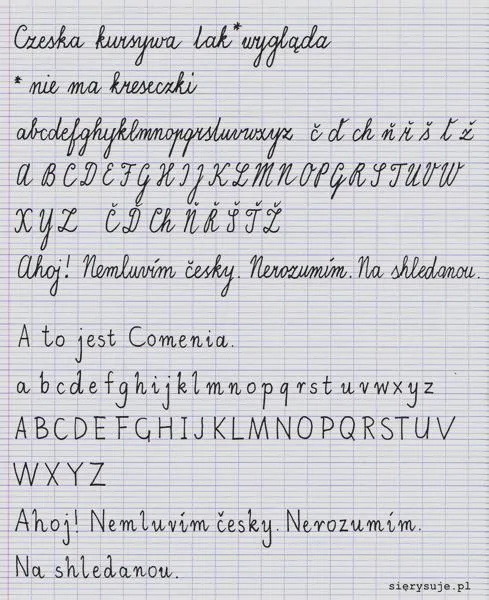 Czeska kursywa tak* wygląda
* nie ma kreseczki
abcdefghyklmnopqrstuvwxyz č ď ch ň ř š ť ž
A B C D E F G H I J K L M N O P Q R S T U V W
X Y Z Č Ď Ch Ň Ř Š Ť Ž
Ahoj! Nemluvím česky. Nerozumím. Na shledanou.
A to jest Comenia.
a b c d e f g h i j k l m n o p q r s t u v w x y z
A B C D E F G H I J K L M N O P Q R S T U V
W X Y Z
Ahoj! Nemluvím česky. Nerozumím.
Na shledanou.
sierysuje.pl